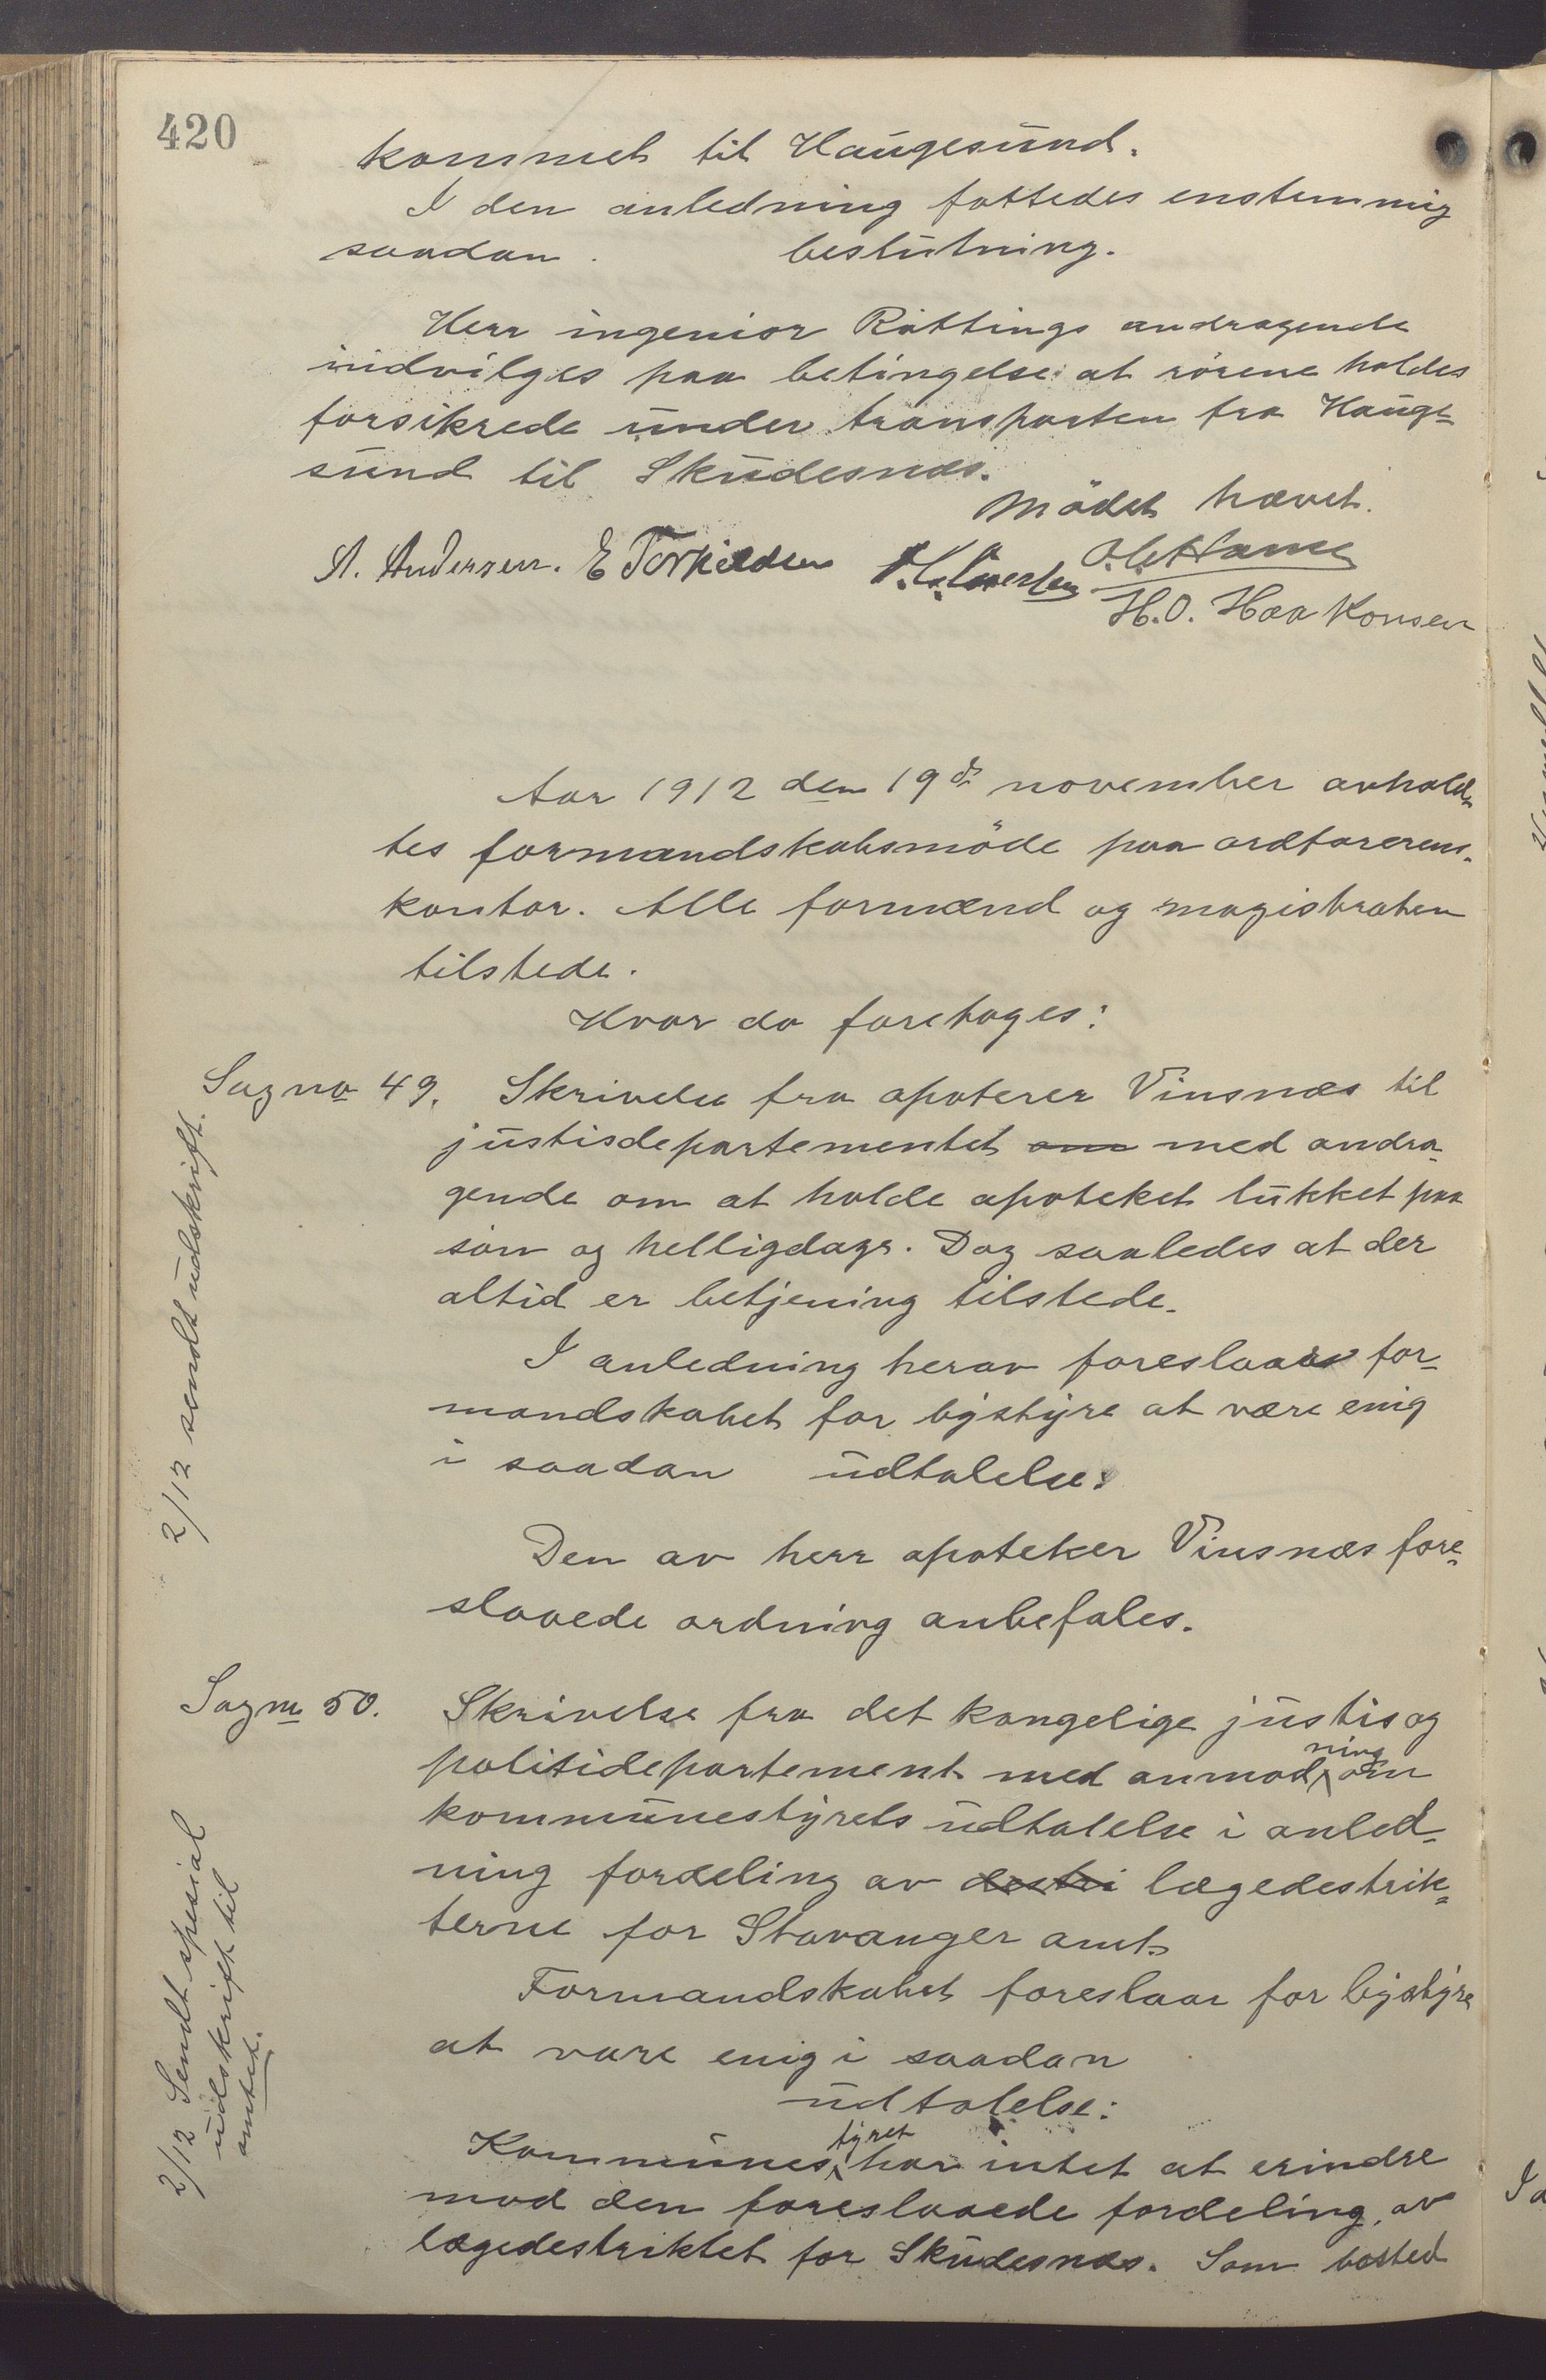 420
kommet til Haugesund.
I den anledning fattedes enstemmig
saadan. beslutning.
Herr ingeniør Røttings andragende
indvilges paa betingelse at rörene holdes
forsikrede under transporten fra Hauge-
sund til Skudesnæs.
Mödet hævet.
A. Andersen. E Torkildsen
H.O. Haakonsen
Aar 1912 den 19de november avhold-
tes formandskabsmöde paa ordförerens
kontor. Alle formænd og magistraten
tilstede.
Hvor da foretoges:
Sag no 49. Skrivelse fra apoterer Vinsnæs til
justisdepartementet om med andra-
gende om at holde apoteket lukket paa
sön og helligdage. Dog saaledes at der
altid er betjening tilstede.
I anledning herav foreslaar for-
mandskabet for bystyre at være enig
i saadan udtalelse:
Den av herr apoteker Vinsnæs fore-
slaaede ordning anbefales.
2/12 sendt udskrift.
Sag no 50. Skrivelse fra det kongelige justis og
politidepartement med anmodning om
kommunestyrets udtalelse i anled-
ning fordeling av destri lægedestrik-
terne for Stavanger amt.
Formandskabet foreslaar for bystyre
at være enig i saadan
udtalelse:
Kommunestyret har intet at erindre
mod den foreslaaede fordeling av
lægedestriktet for Skudesnæs. Som bosted
2/12 Sendt spesial
udskrift til
amtet.